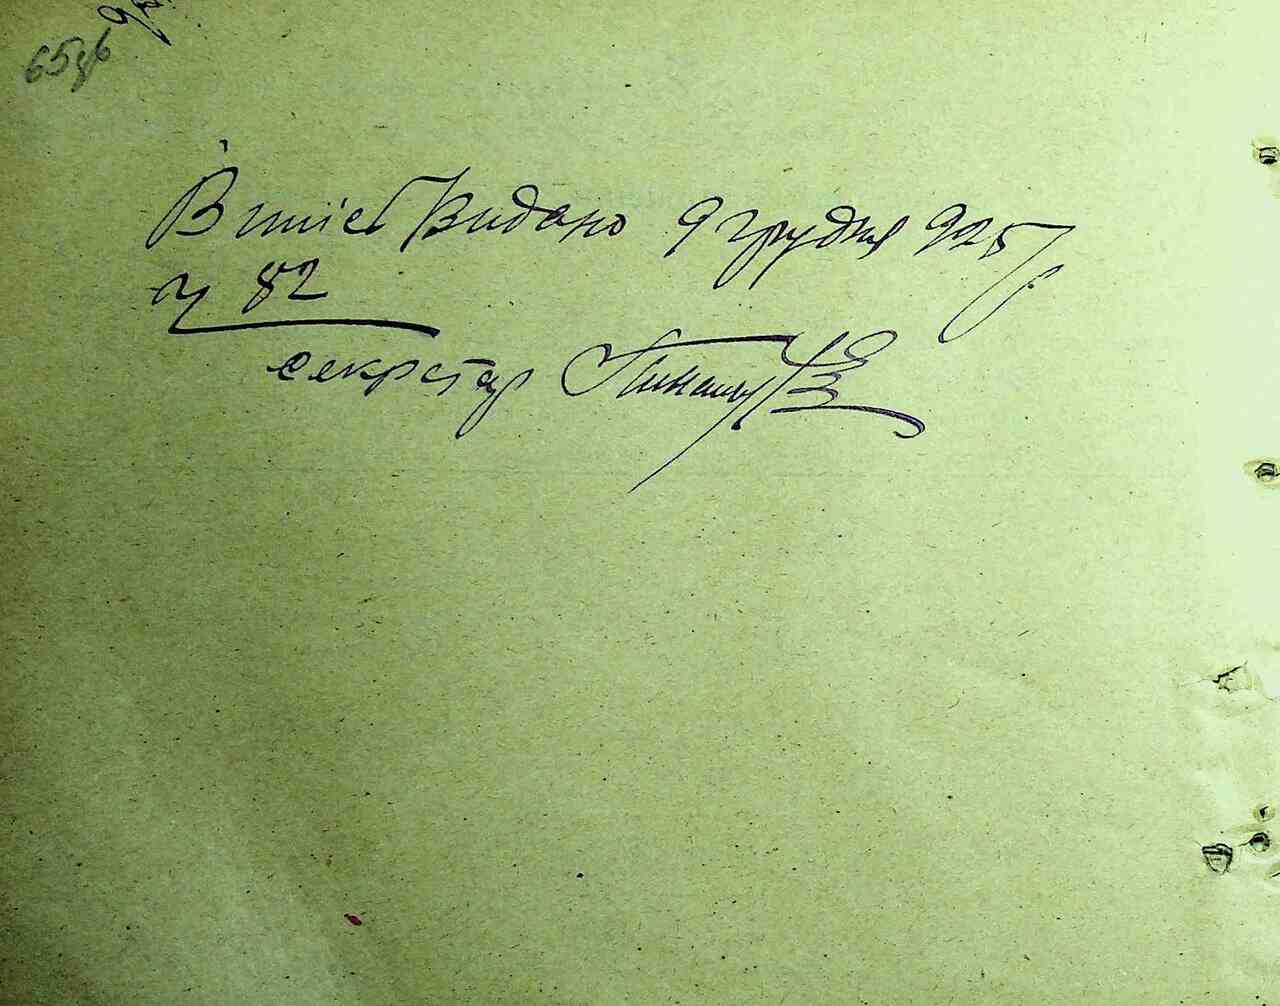 65зв
Випіс Видано 9 грудня 925 р.
ч 82
секретар